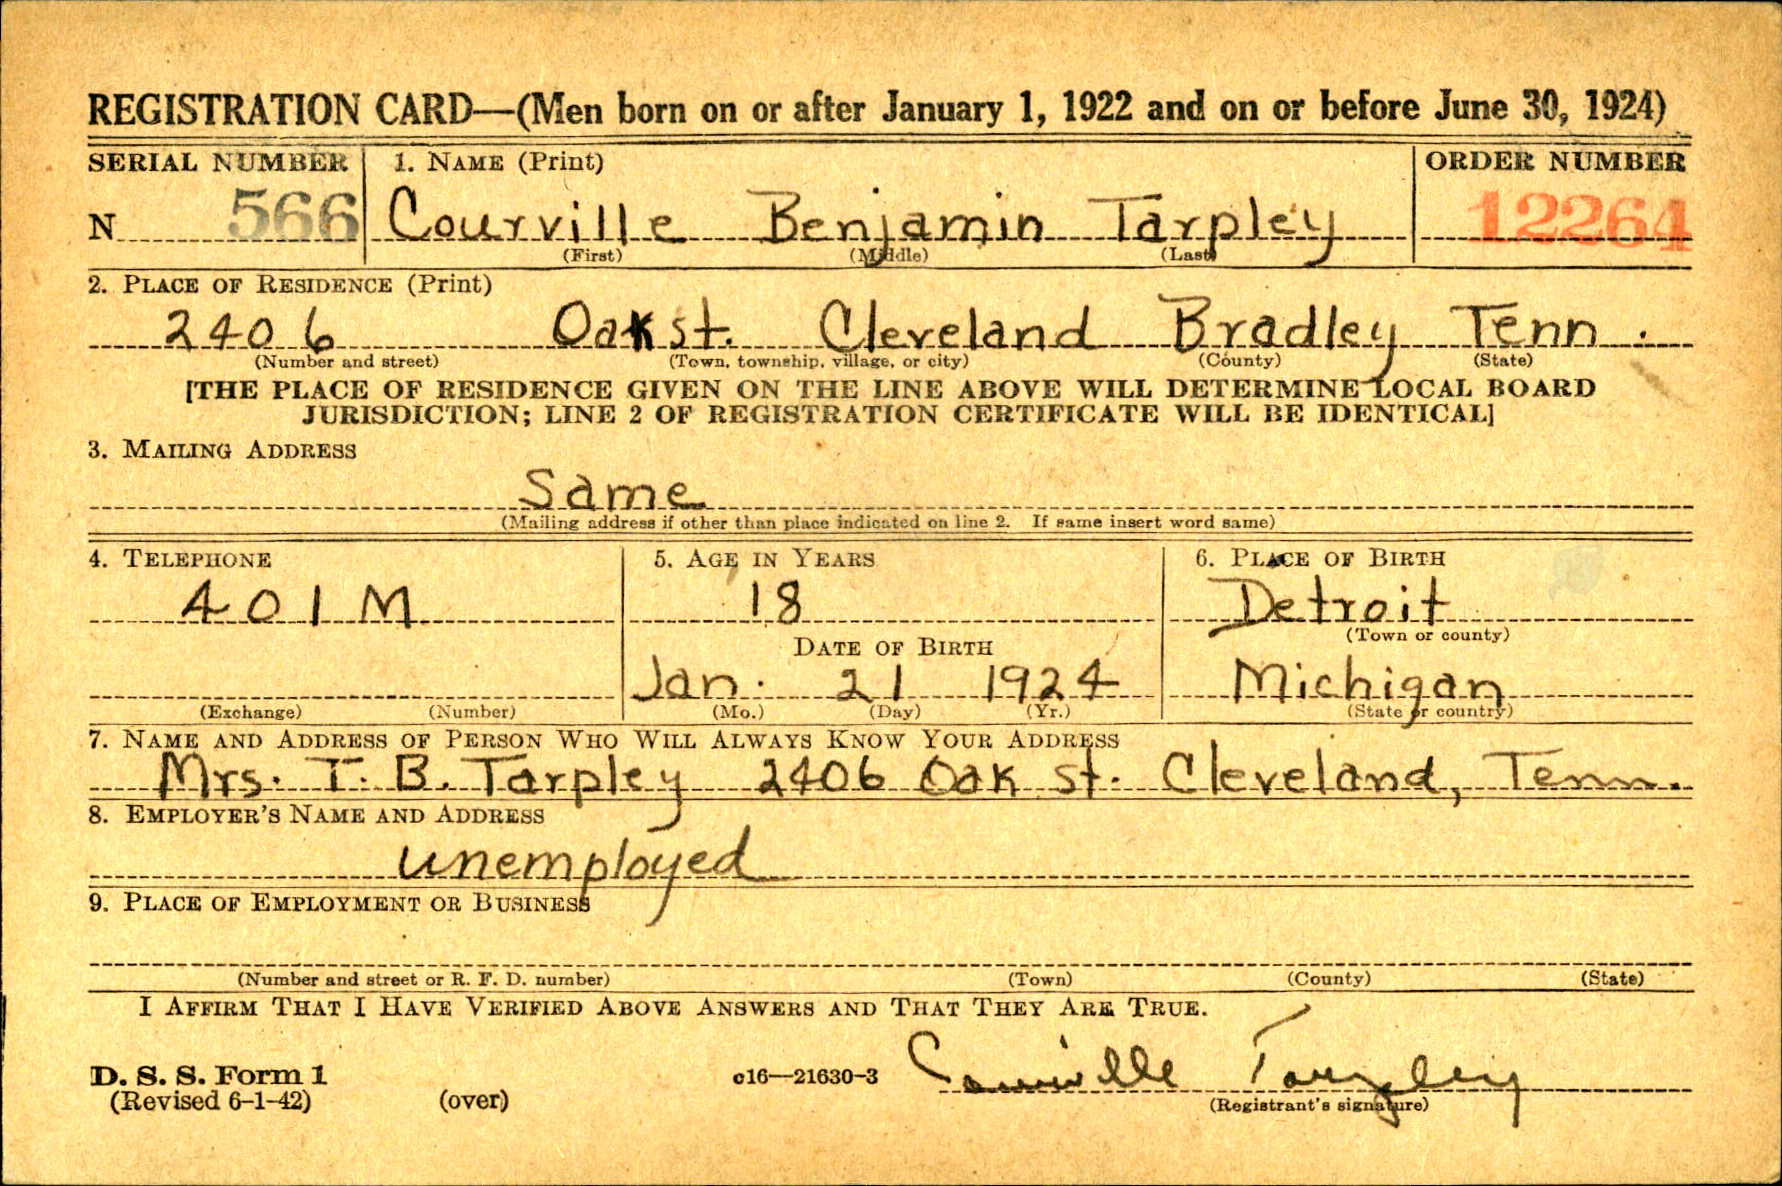 REGISTRATION CARD—(Men born on or after January 1, 1922 and on or before June 30, 1924)
SERIAL NUMBER 1. NAME (Print) ORDER NUMBER
N 566 Courville Benjamin Tarpley 12264
(First) (Middle) (Last)
2. PLACE OF RESIDENCE (Print)
2406 Oak St. Cleveland Bradley Tenn.
(Number and street) (Town, township, village, or city) (County) (State)
[THE PLACE OF RESIDENCE GIVEN ON THE LINE ABOVE WILL DETERMINE LOCAL BOARD
JURISDICTION; LINE 2 OF REGISTRATION CERTIFICATE WILL BE IDENTICAL]
3. MAILING ADDRESS
Same
(Mailing address if other than place indicated on line 2. If same insert word same)
4. TELEPHONE 5. AGE IN YEARS 6. PLACE OF BIRTH
401 M 18 Detroit
DATE OF BIRTH (Town or county)
Jan. 21 1924 Michigan
(Exchange) (Number) (Mo.) (Day) (Yr.) (State or country)
7. NAME AND ADDRESS OF PERSON WHO WILL ALWAYS KNOW YOUR ADDRESS
Mrs. T. B. Tarpley 2406 Oak St. Cleveland, Tenn.
8. EMPLOYER'S NAME AND ADDRESS
unemployed
9. PLACE OF EMPLOYMENT OR BUSINESS
(Number and street or R. F. D. number) (Town) (County) (State)
I AFFIRM THAT I HAVE VERIFIED ABOVE ANSWERS AND THAT THEY ARE TRUE.
D. S. S. Form 1 c16—21630-3 Courville Tarpley
(Revised 6-1-42) (over) (Registrant's signature)